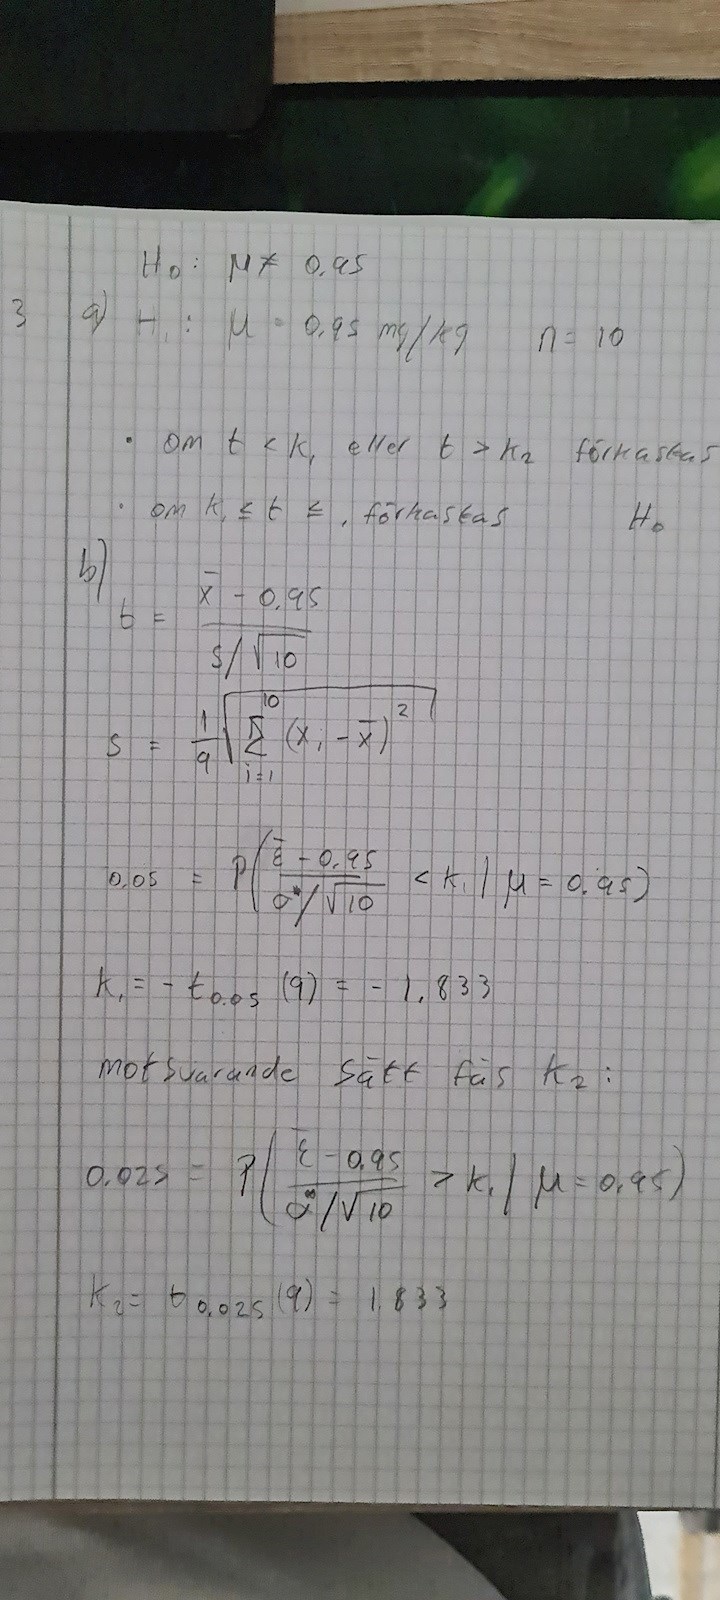 H₀: μ ≠ 0.95
3 a) H₁: μ = 0.95 mg/kg n = 10
· om t < k₁ eller t > k₂ förkastas
· om k₁ ≤ t ≤ , förkastas H₀
b)
t = (x̄ - 0.95) / (s/√10)
s = 1/9 √(∑_{i=1}^{10} (xᵢ - x̄)²)
0.05 = P( (ξ̄ - 0.95) / (σ*/√10) < k₁ | μ = 0.95)
k₁ = - t₀.₀₅ (9) = - 1.833
motsvarande sätt fås k₂:
0.025 = P( (ξ̄ - 0.95) / (σ*/√10) > k₁ | μ = 0.95)
k₂ = t₀.₀₂₅ (9) = 1.833